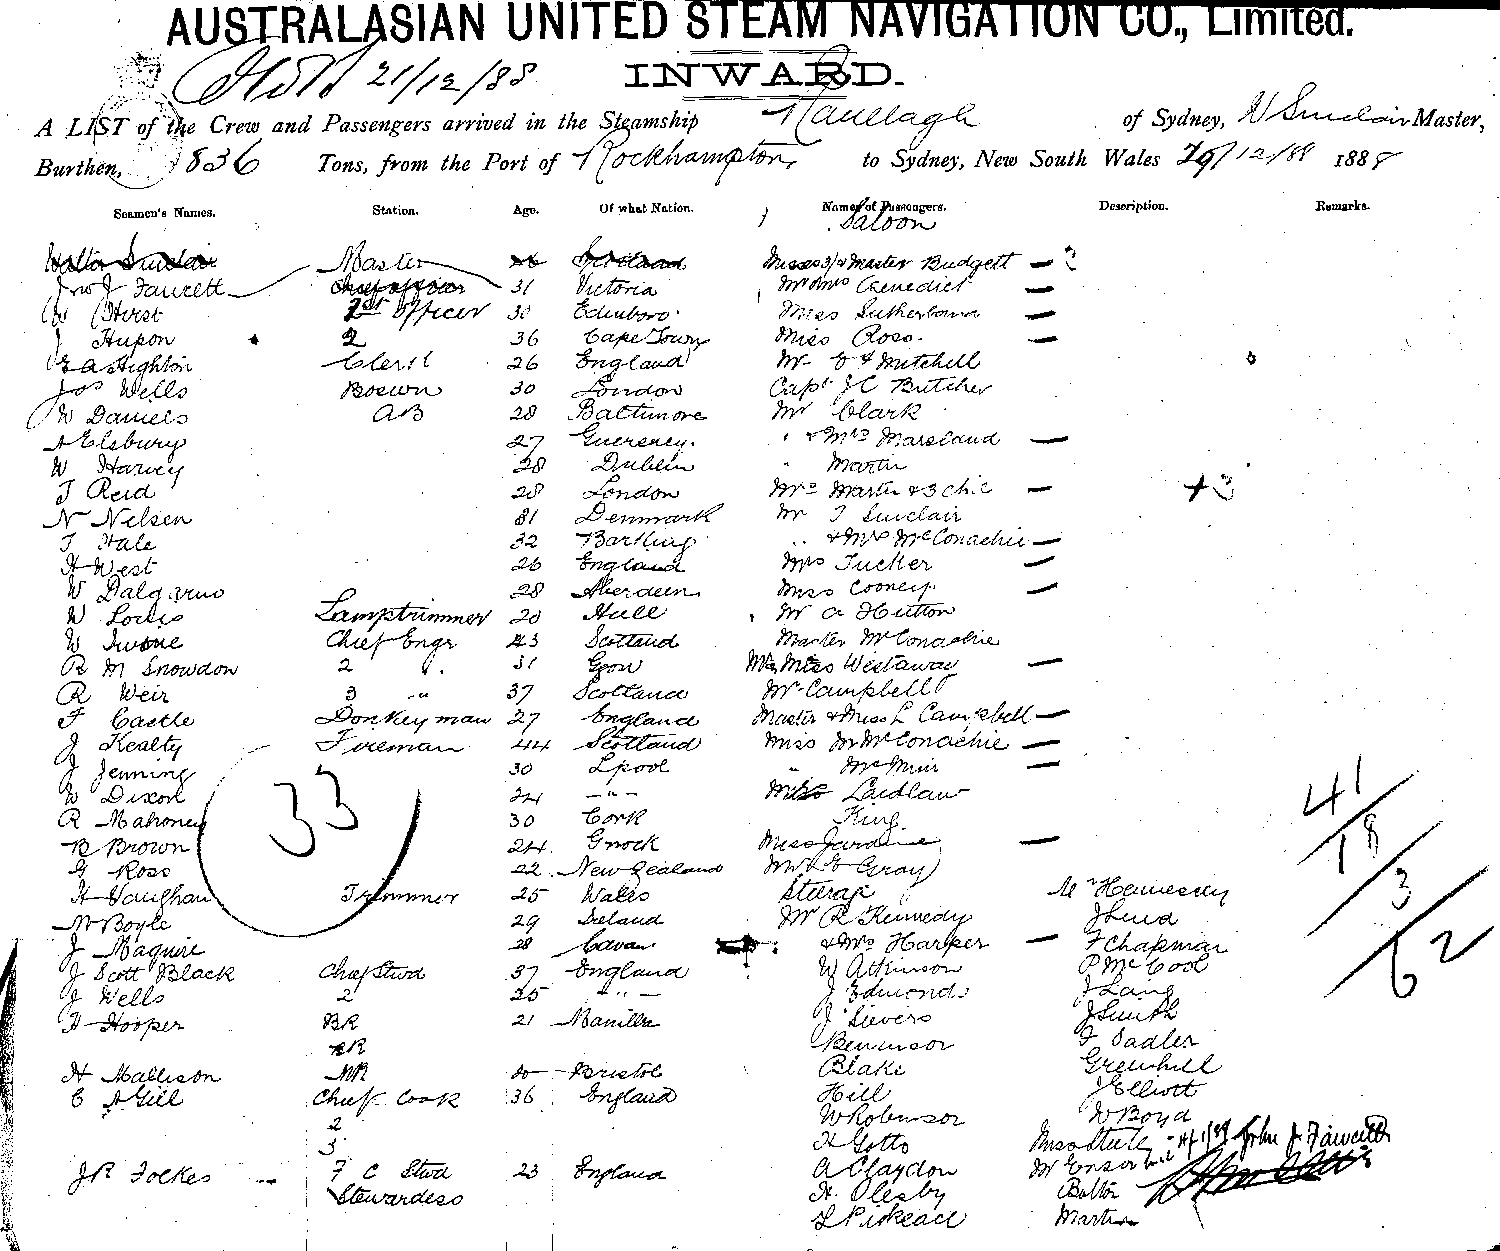 AUSTRALASIAN UNITED STEAM NAVIGATION CO., Limited.
21/12/88 INWARD.
A LIST of the Crew and Passengers arrived in the Steamship Ranelagh of Sydney, W Sinclair Master,
Burthen, 836 Tons, from the Port of Rockhampton, to Sydney, New South Wales 20/12/88 1888
Seamen's Names. Station. Age. Of what Nation. Names of Passengers. Description. Remarks.
Saloon
Walter Sinclair Master Scotland Misses 3/ & Master Budgett — 3
Jno J Fawcett Chief officer 31 Victoria Mr & Mrs Benedict —
W Hirst 1st Officer 30 Edinboro Miss Sutherland —
J Hupon 2 36 Cape Town Miss Ross. —
E A Highton Clerk 26 England Mr Mitchell
Jos Wells Boswn 30 London Capt J C Butcher
W Daniels AB 28 Baltimore Mr Clark
A Elsbury 27 Guernsey. " & Mrs Marsland —
W Harvey 28 Dublin " Martin
T Reid 28 London Mrs Martin & 3 chi — +3
N Nelsen 31 Denmark Mr T Sinclair
T Hale 32 Barking " & Mrs McConachie —
H West 26 England Mrs Tucker —
W Dalgarno 28 Aberdeen Miss Cooney. —
W Lamptrimmer 20 Hull Mr A Hutton
W Chief Engr 43 Scotland Master McConachie
R M Snowdon 2 " 31 Miss Westaway —
R Weir 3 " 37 Scotland Mr Campbell
F Castle Donkeyman 27 England Master & Miss L Campbell —
J Kealty Fireman 44 Scotland Miss M McConachie —
J Jenning 30 Lpool " McMuir —
W Dixon 24 — " — Laidlaw
R Mahoney 30 Cork King
B Brown 24 Gnock Miss Jardine —
G Ross 22 New Zealand Mr G Gray
H Vaughan Trimmer 25 Wales Steerage Mr Hennessy
N Boyle 29 Ireland Mr R Kennedy J Lund
J Maguire 28 Cavan & Mrs Harper — F Chapman
J Scott Black Chief Stwd 37 England W Atkinson P McCool
J Wells 2 25 — " — J Edmonds J Lang
H Hooper BR 21 Manilla J Sievers J Smith
RR Beninson F Sadler
H Mallison MR Bristol Blake Greenhill
C A Gill Chief Cook 36 England Hill J Elliott
2 W Robinson W Boyd
3 H Gotto Miss Steele John J Fawcett
J R Fockes F C Stwd 23 England A Claydon Mr Ensor
Stewardess H. Olesby Bolton
Martin
33
41
18
3
62